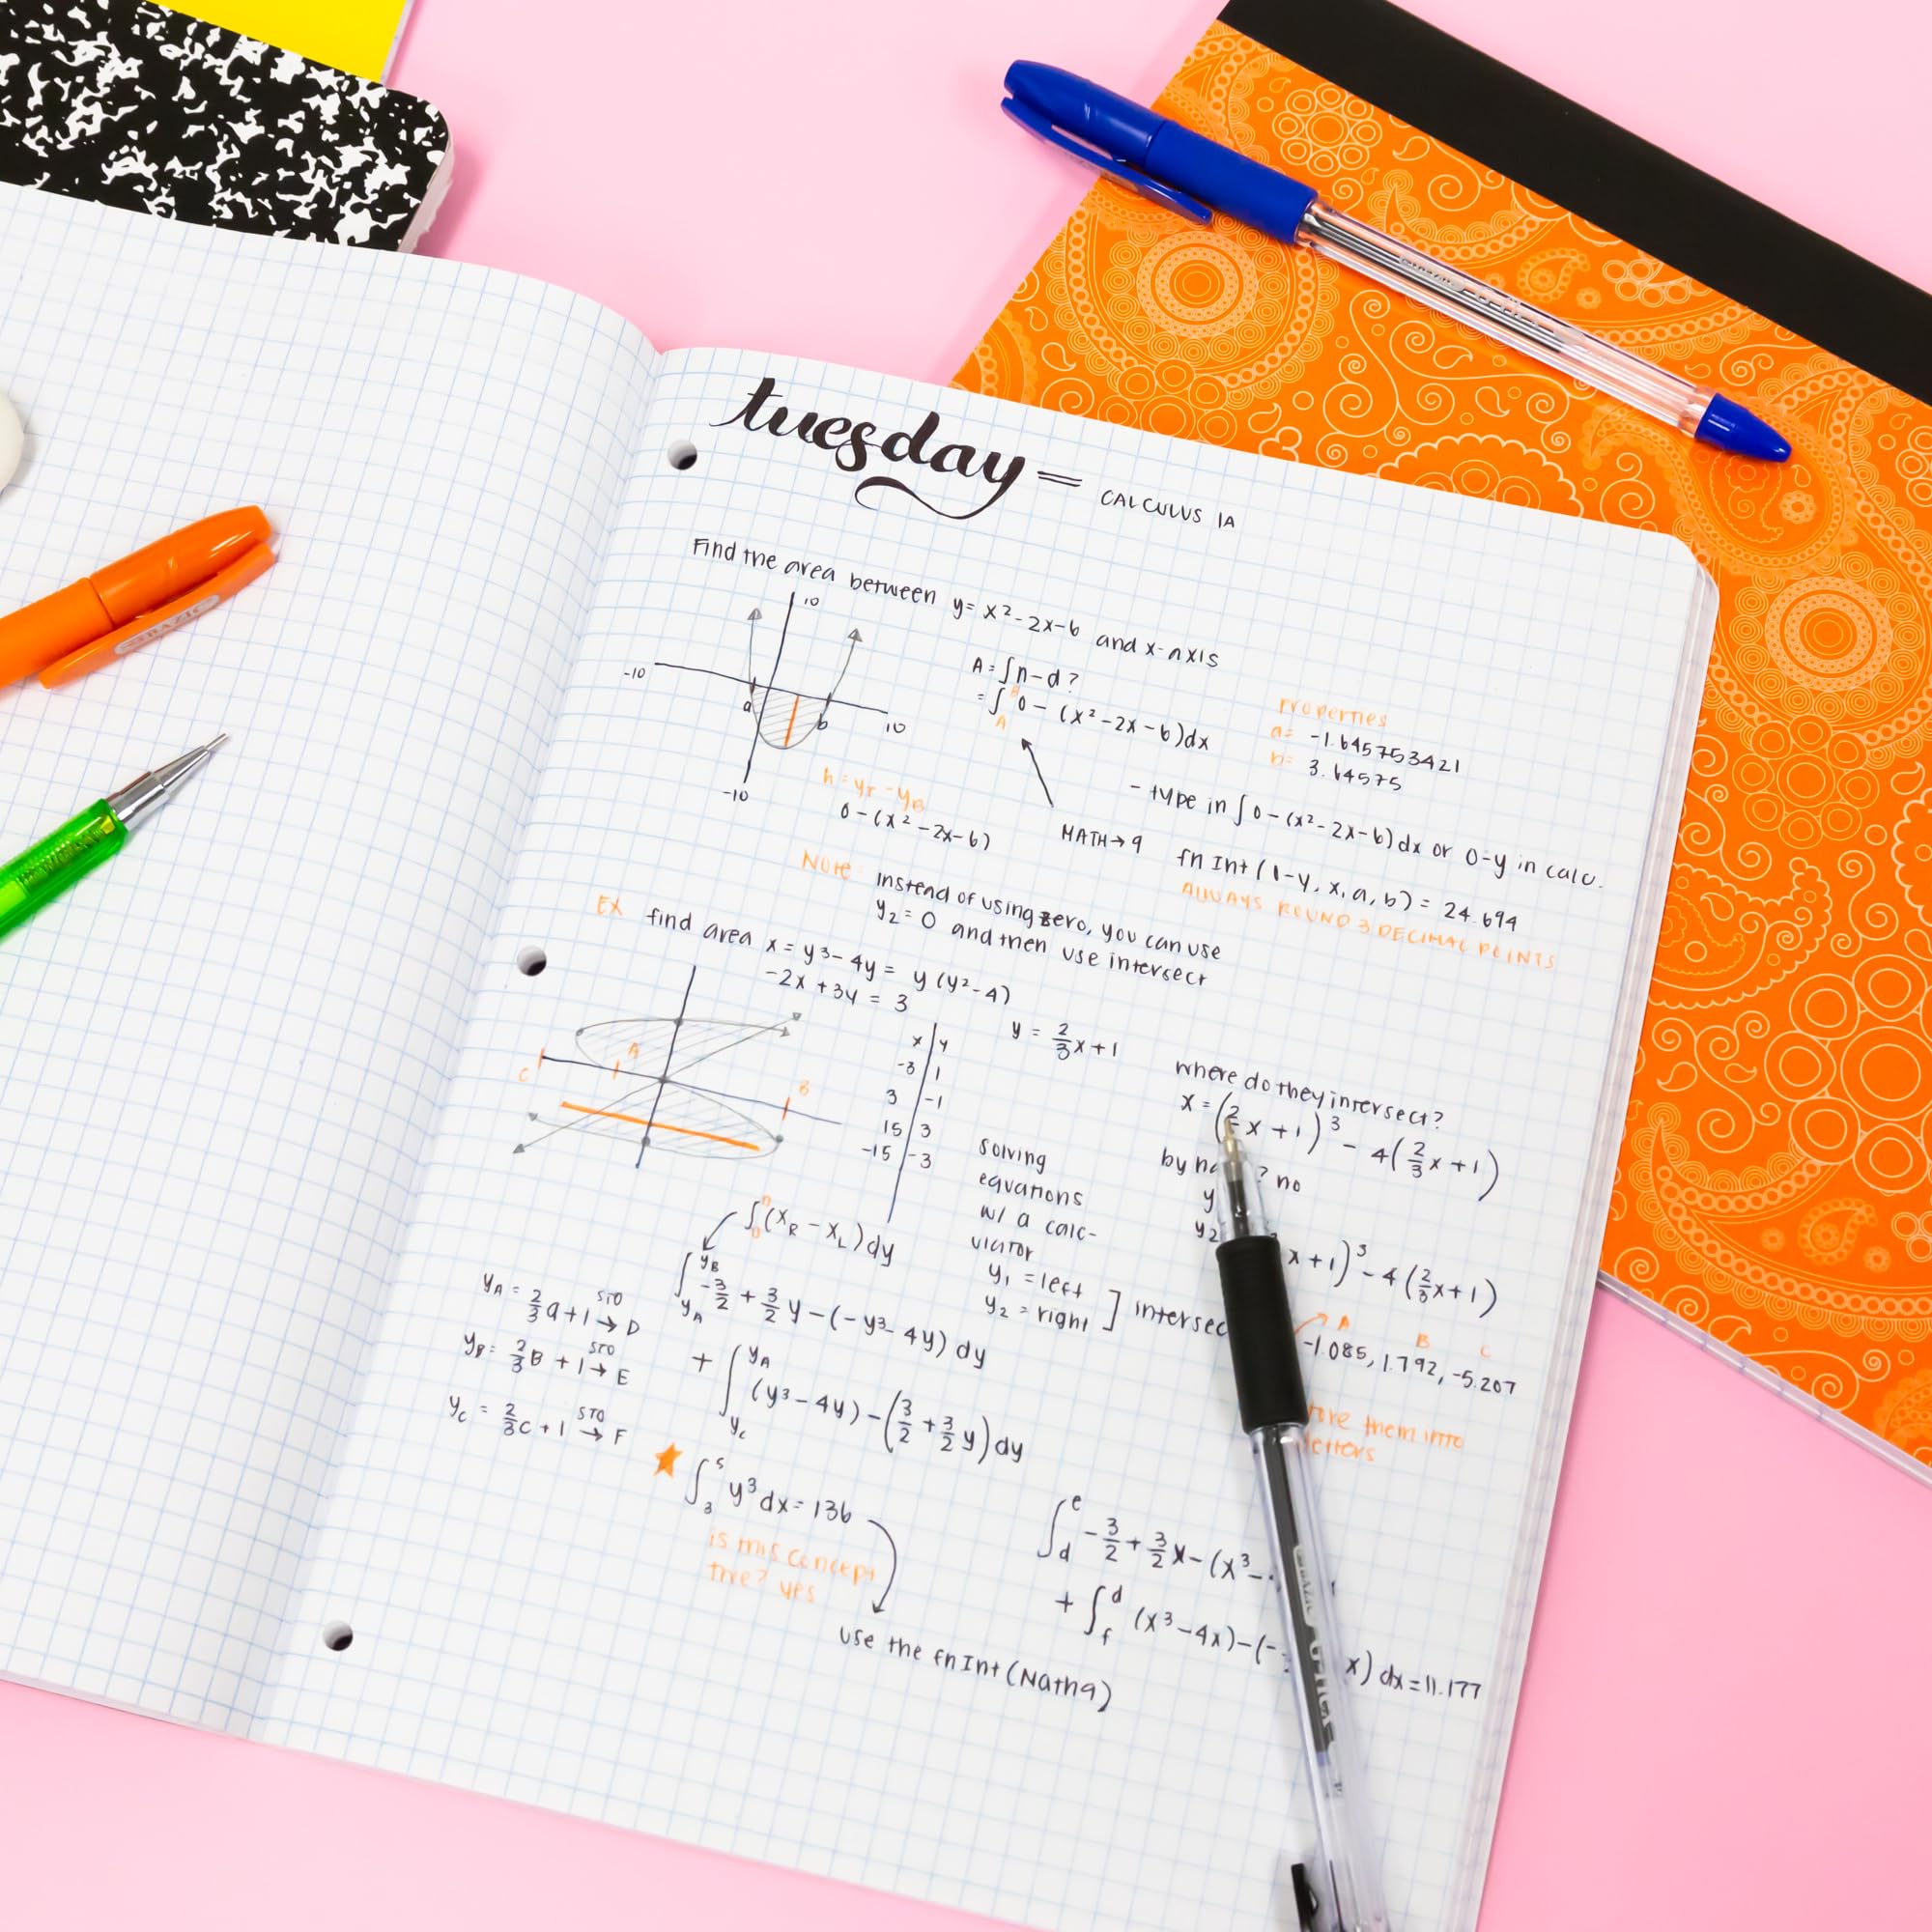 tuesday =
CALCULUS 1A
Find the area between y = x² - 2x - 6 and x-axis
10
-10
a
b
10
-10
A = ∫ n - d ?
= ∫ᴮ_A 0 - (x² - 2x - 6) dx
Properties
a = -1.645753421
b = 3.64575
h = y_T - y_B
0 - (x² - 2x - 6)
MATH → 9
- type in ∫ 0 - (x² - 2x - 6) dx or 0-y in calc.
fn Int (1-y, x, a, b) = 24.694
ALWAYS ROUND 3 DECIMAL POINTS
Note: instead of using zero, you can use
y₂ = 0 and then use intersect
EX find area x = y³ - 4y = y (y² - 4)
-2x + 3y = 3
C
A
B
x | y
-3 | 1
3 | -1
15 | 3
-15 | -3
y = 2/3 x + 1
where do they intersect?
x = (2/3 x + 1)³ - 4(2/3 x + 1)
by ? no
y
y₂ x + 1)³ - 4 (2/3 x + 1)
solving
equations
w/ a calc-
ulator
y₁ = left
y₂ = right ] intersec
A B C
-1.085, 1.792, -5.207
them into
letters
∫ (x_R - x_L) dy
∫_{y_A}^{y_B} -3/2 + 3/2 y - (-y³ - 4y) dy
+ ∫_{y_C}^{y_A} (y³ - 4y) - (3/2 + 3/2 y) dy
y_A = 2/3 a + 1 STO → D
y_B = 2/3 B + 1 STO → E
y_C = 2/3 C + 1 STO → F
∫₃⁵ y³ dx = 136
is this concept
true? yes
use the fnInt (Math9)
∫_d^e -3/2 + 3/2 x - (x³ -
+ ∫_f^d (x³ - 4x) - (- x) dx = 11.177
BAZIC